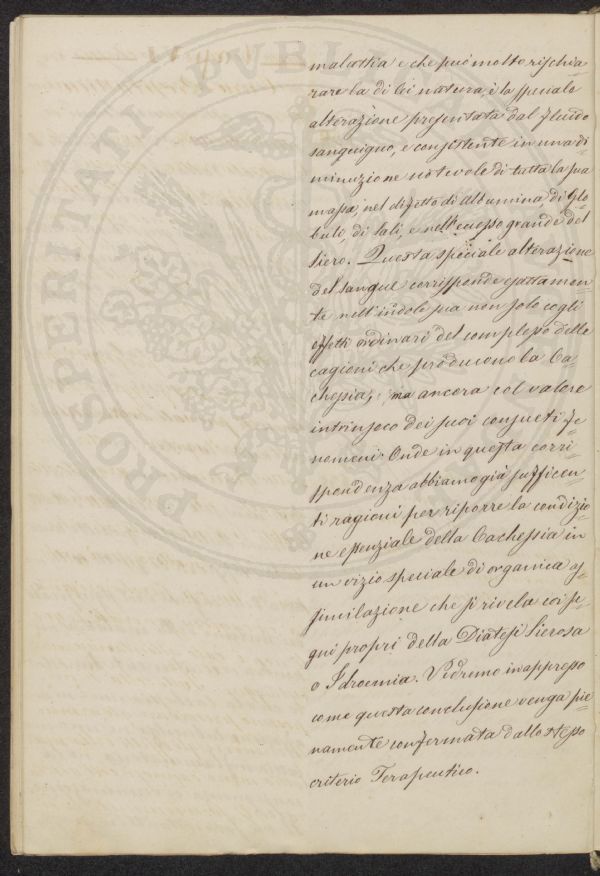 malattia e che può molto rischia
rare la di lei natura, è la speciale
alterazione presentata dal fluido
sanguigno, e consistente in una di
minuzione notevole di tutta la sua
massa, nel difetto di Albumina, di Glo-
buli, di Sali, e nell'eccesso grande del
Siero. Questa speciale alterazione
del sangue corrisponde esattamen-
te nell'indole sua non solo cogli
effetti ordinari del complesso delle
cagioni che producono la Ca-
chessia, ma ancora col valore
intrinseco dei suoi consueti fe-
nomeni. Onde in questa corri-
spondenza abbiamo già sufficen-
ti ragioni per riporre la condizio
ne essenziale della Cachessia in
un vizio speciale di organica as-
similazione che si rivela coi se-
gni propri della Diatesi Sierosa
o Idroemia. Vedremo in appresso
come questa conclusione venga pie
namente confermata dallo stesso
criterio Terapeutico.
PROSPERITATI PVBLICAE